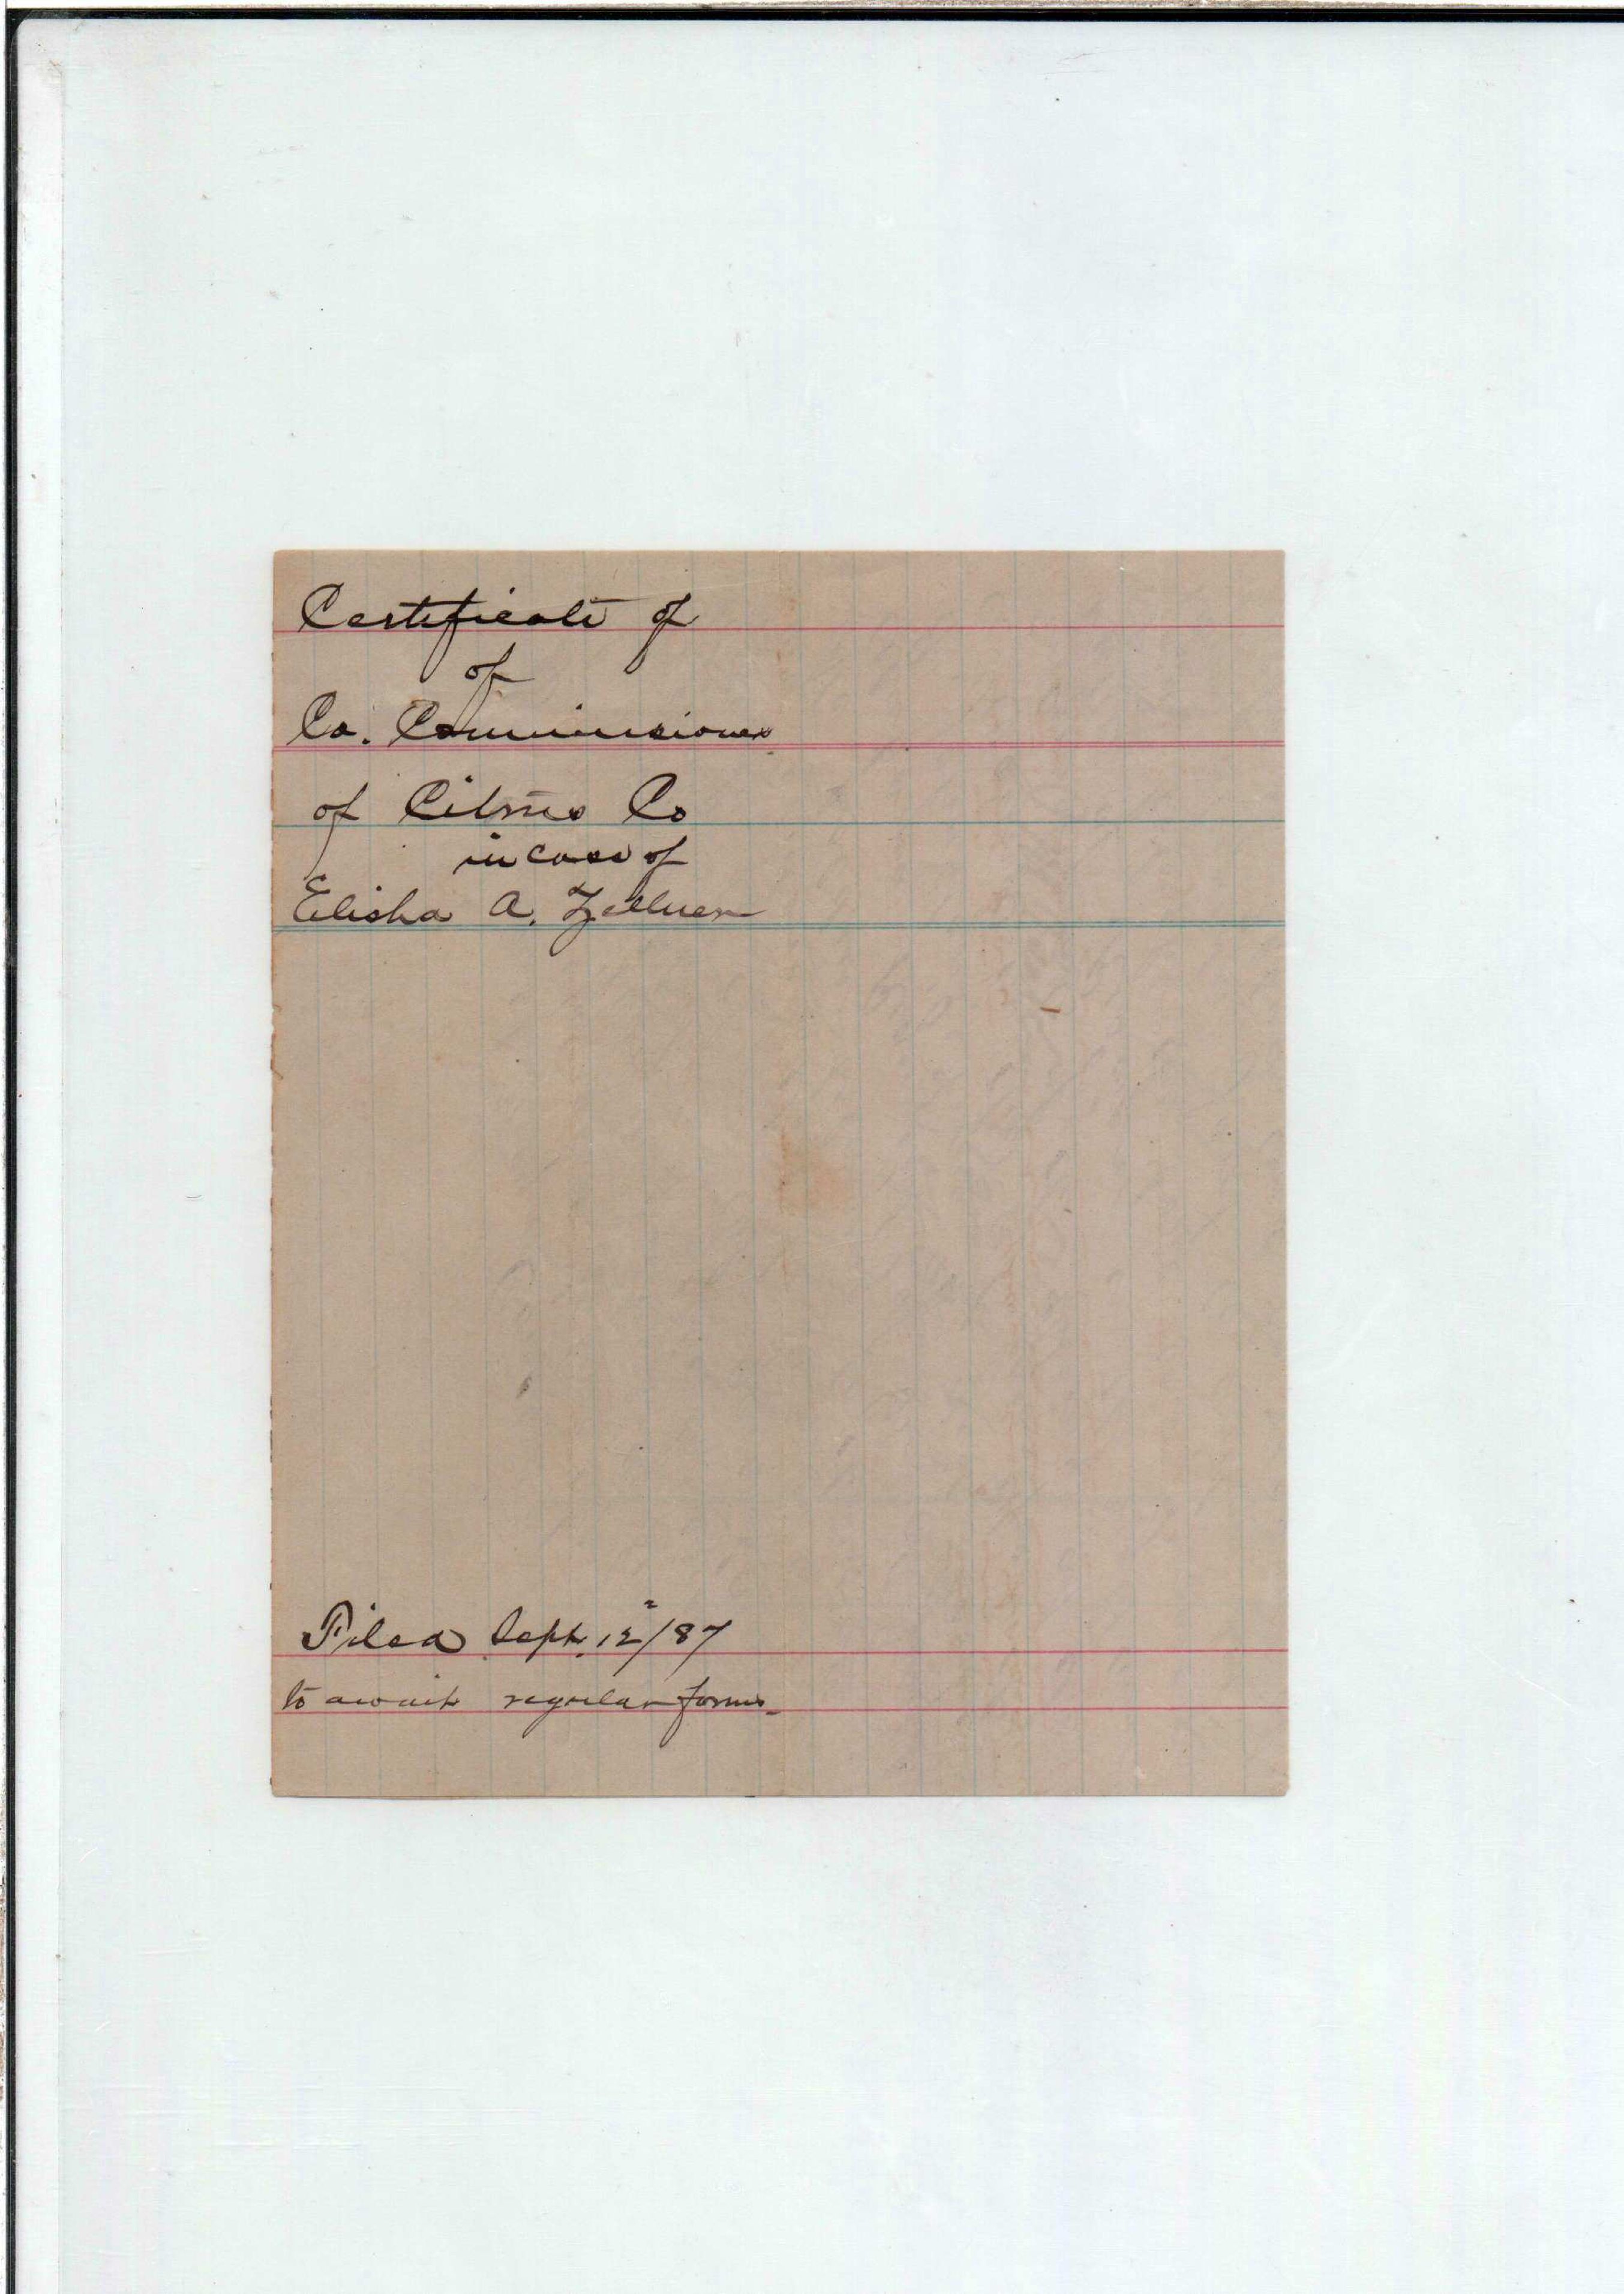 Certificate of
of
Co. Commissioner
of Citrus Co
in case of
Elisha A. Zellner
Filed Sept. 12"/87
to await regular forms.